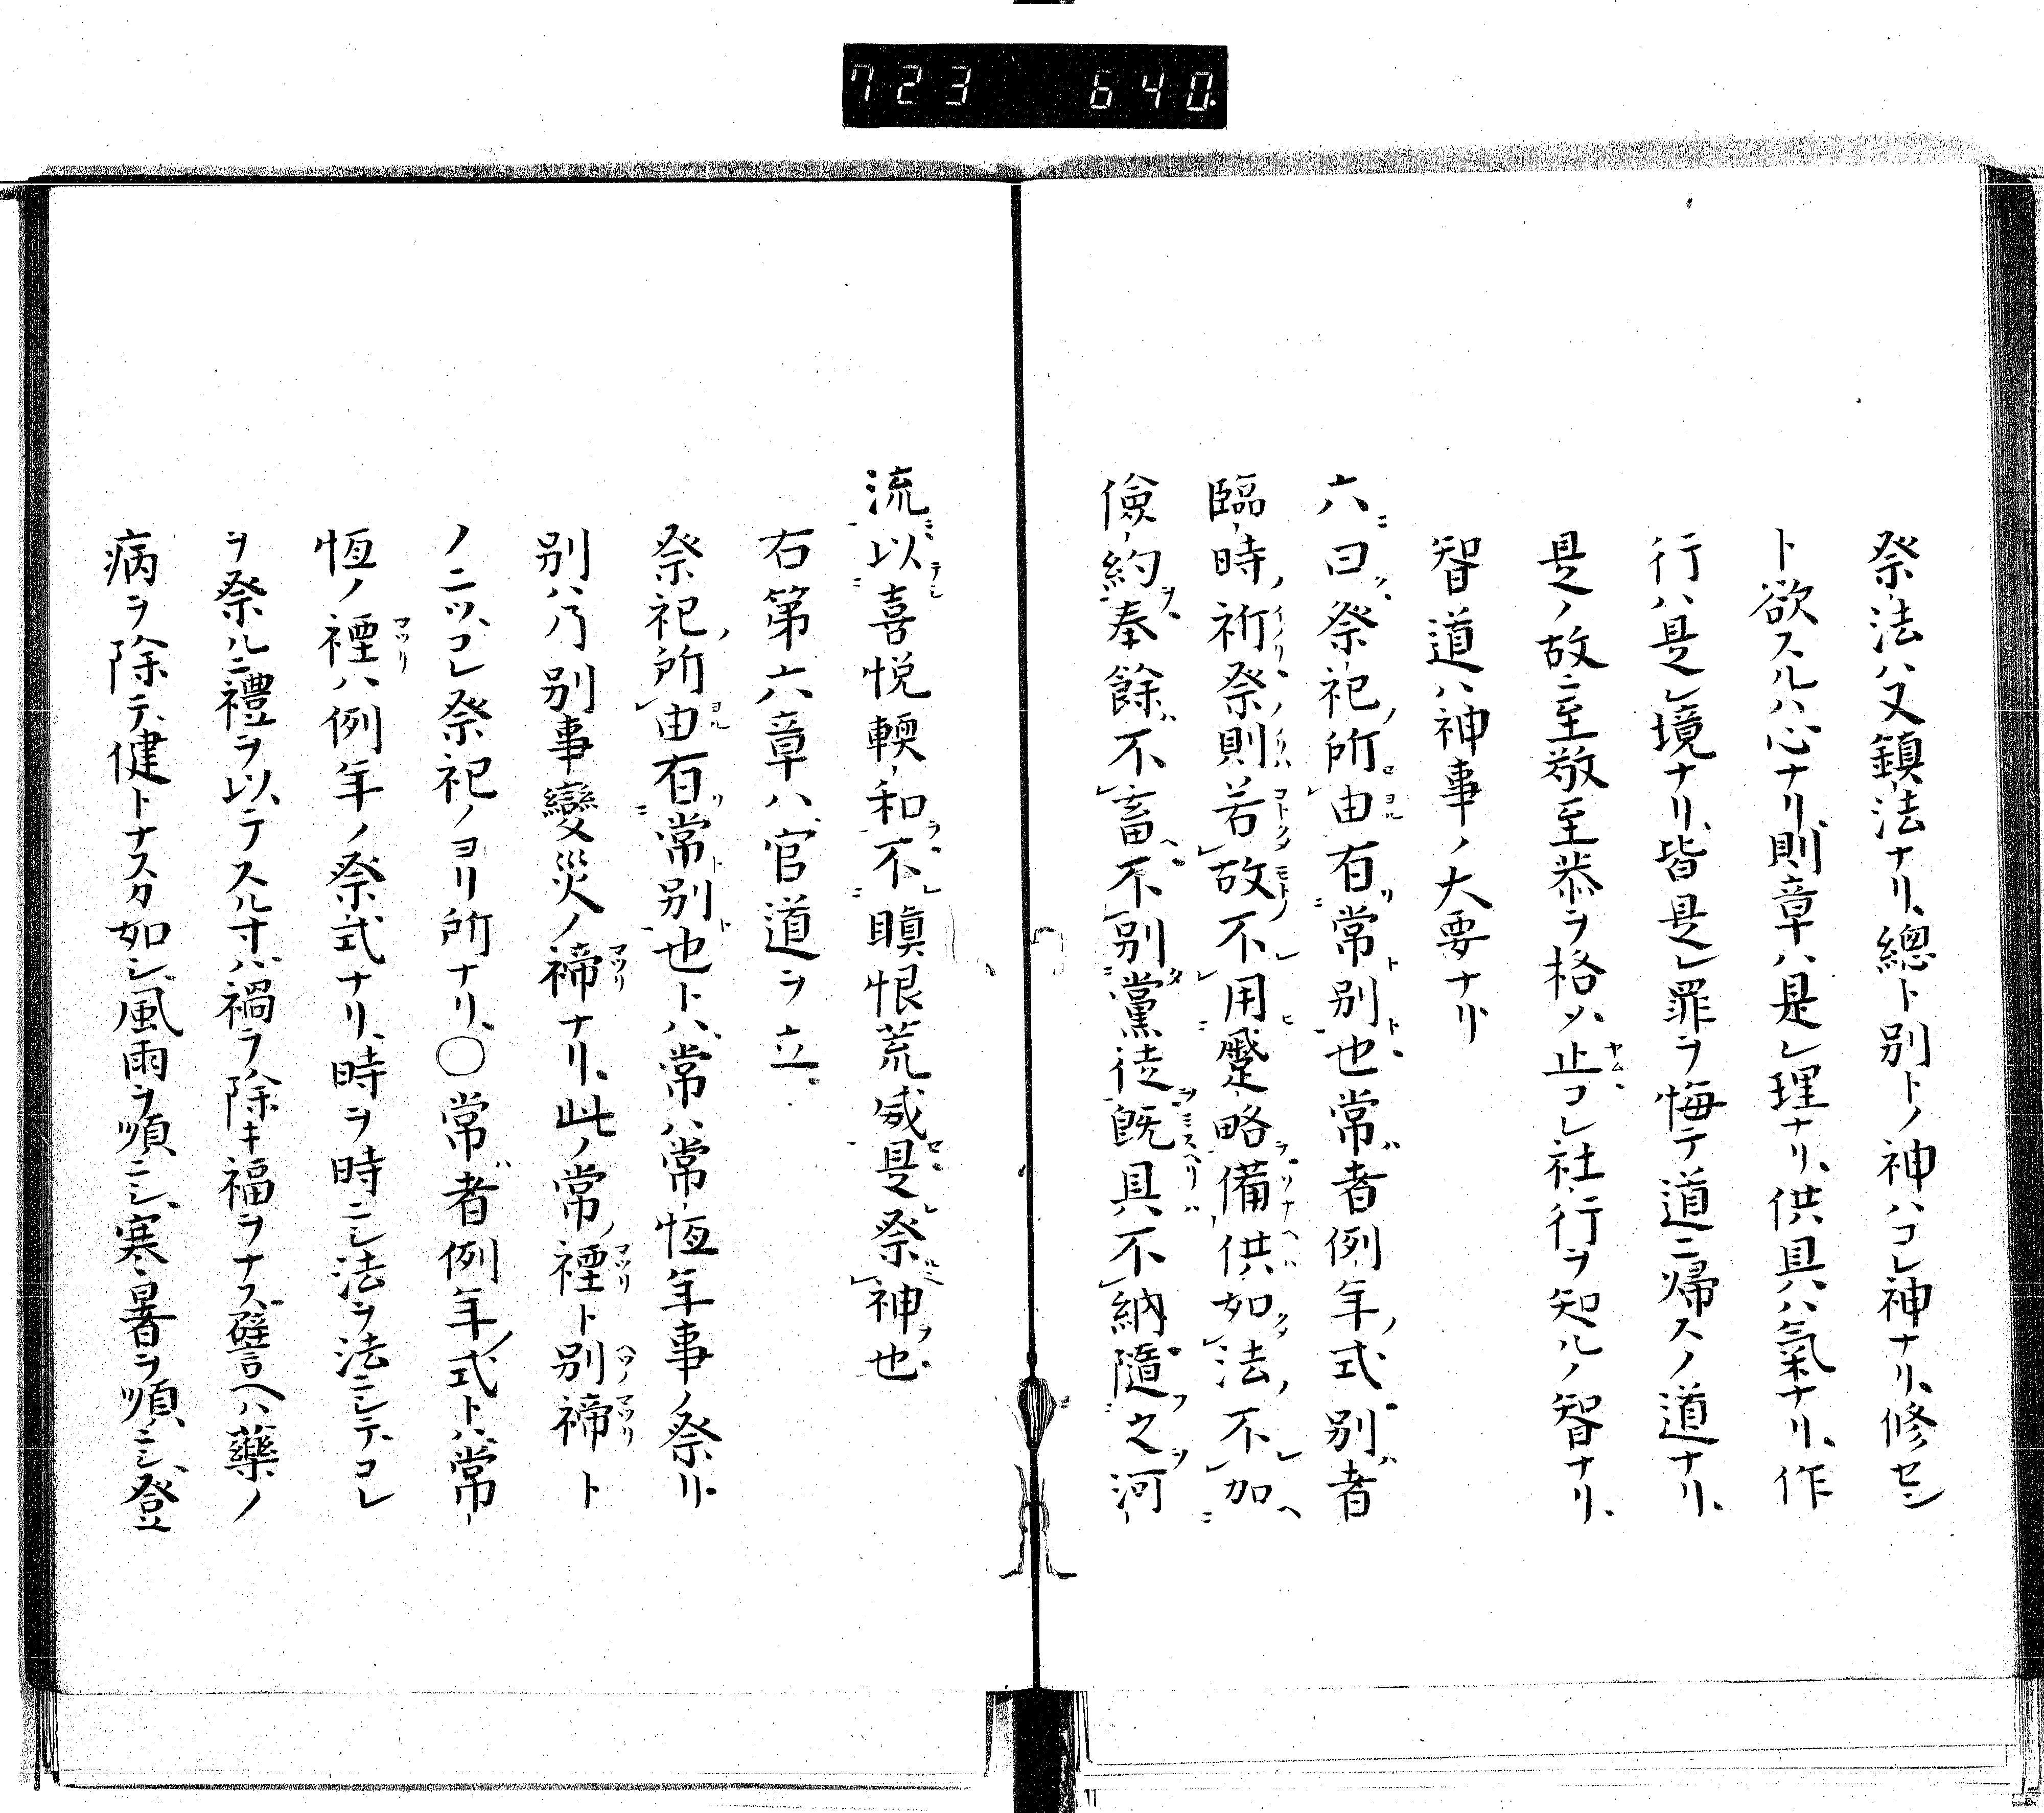 723 640.
祭法ハ又鎮法ナリ、總ト別トノ神ハコレ神ナリ、修セン
ト欲スルハ心ナリ、則章ハ是レ理ナリ、供具ハ氣ナリ、作
行ハ是レ境ナリ、皆是レ罪ヲ悔テ道ニ帰スノ道ナリ、
是ノ故ニ至敬至恭ヲ格ツ、止コレ社行ヲ知ルノ智ナリ、
智道ハ神事ノ大要ナリ
六曰祭祀所由有常別也常者例年式別者
臨時祈祭則若故不用蹙略備供如法不加
儉約奉餘不畜不別黨徒既具不納隨之河
流以喜悦輭和不瞋恨荒威是祭神也
右第六章ハ官道ヲ立
祭祀所由有常別也トハ常ハ常恆年事ノ祭リ
別ハ乃別事變災ノ禘ナリ、此ノ常ノ禋ト別禘ト
ノ二ツ、コレ祭祀ノヨリ所ナリ、〇常者例年式トハ常
恆ノ禋ハ例年ノ祭式ナリ、時ヲ時ニシ法ヲ法ニシテ、コレ
ヲ祭ルニ禮ヲ以テスル寸ハ禍ヲ除キ福ヲナス譬ヘハ藥ノ
病ヲ除テ健トナスカ如シ、風雨ヲ順ニシ、寒暑ヲ順ニシ、登